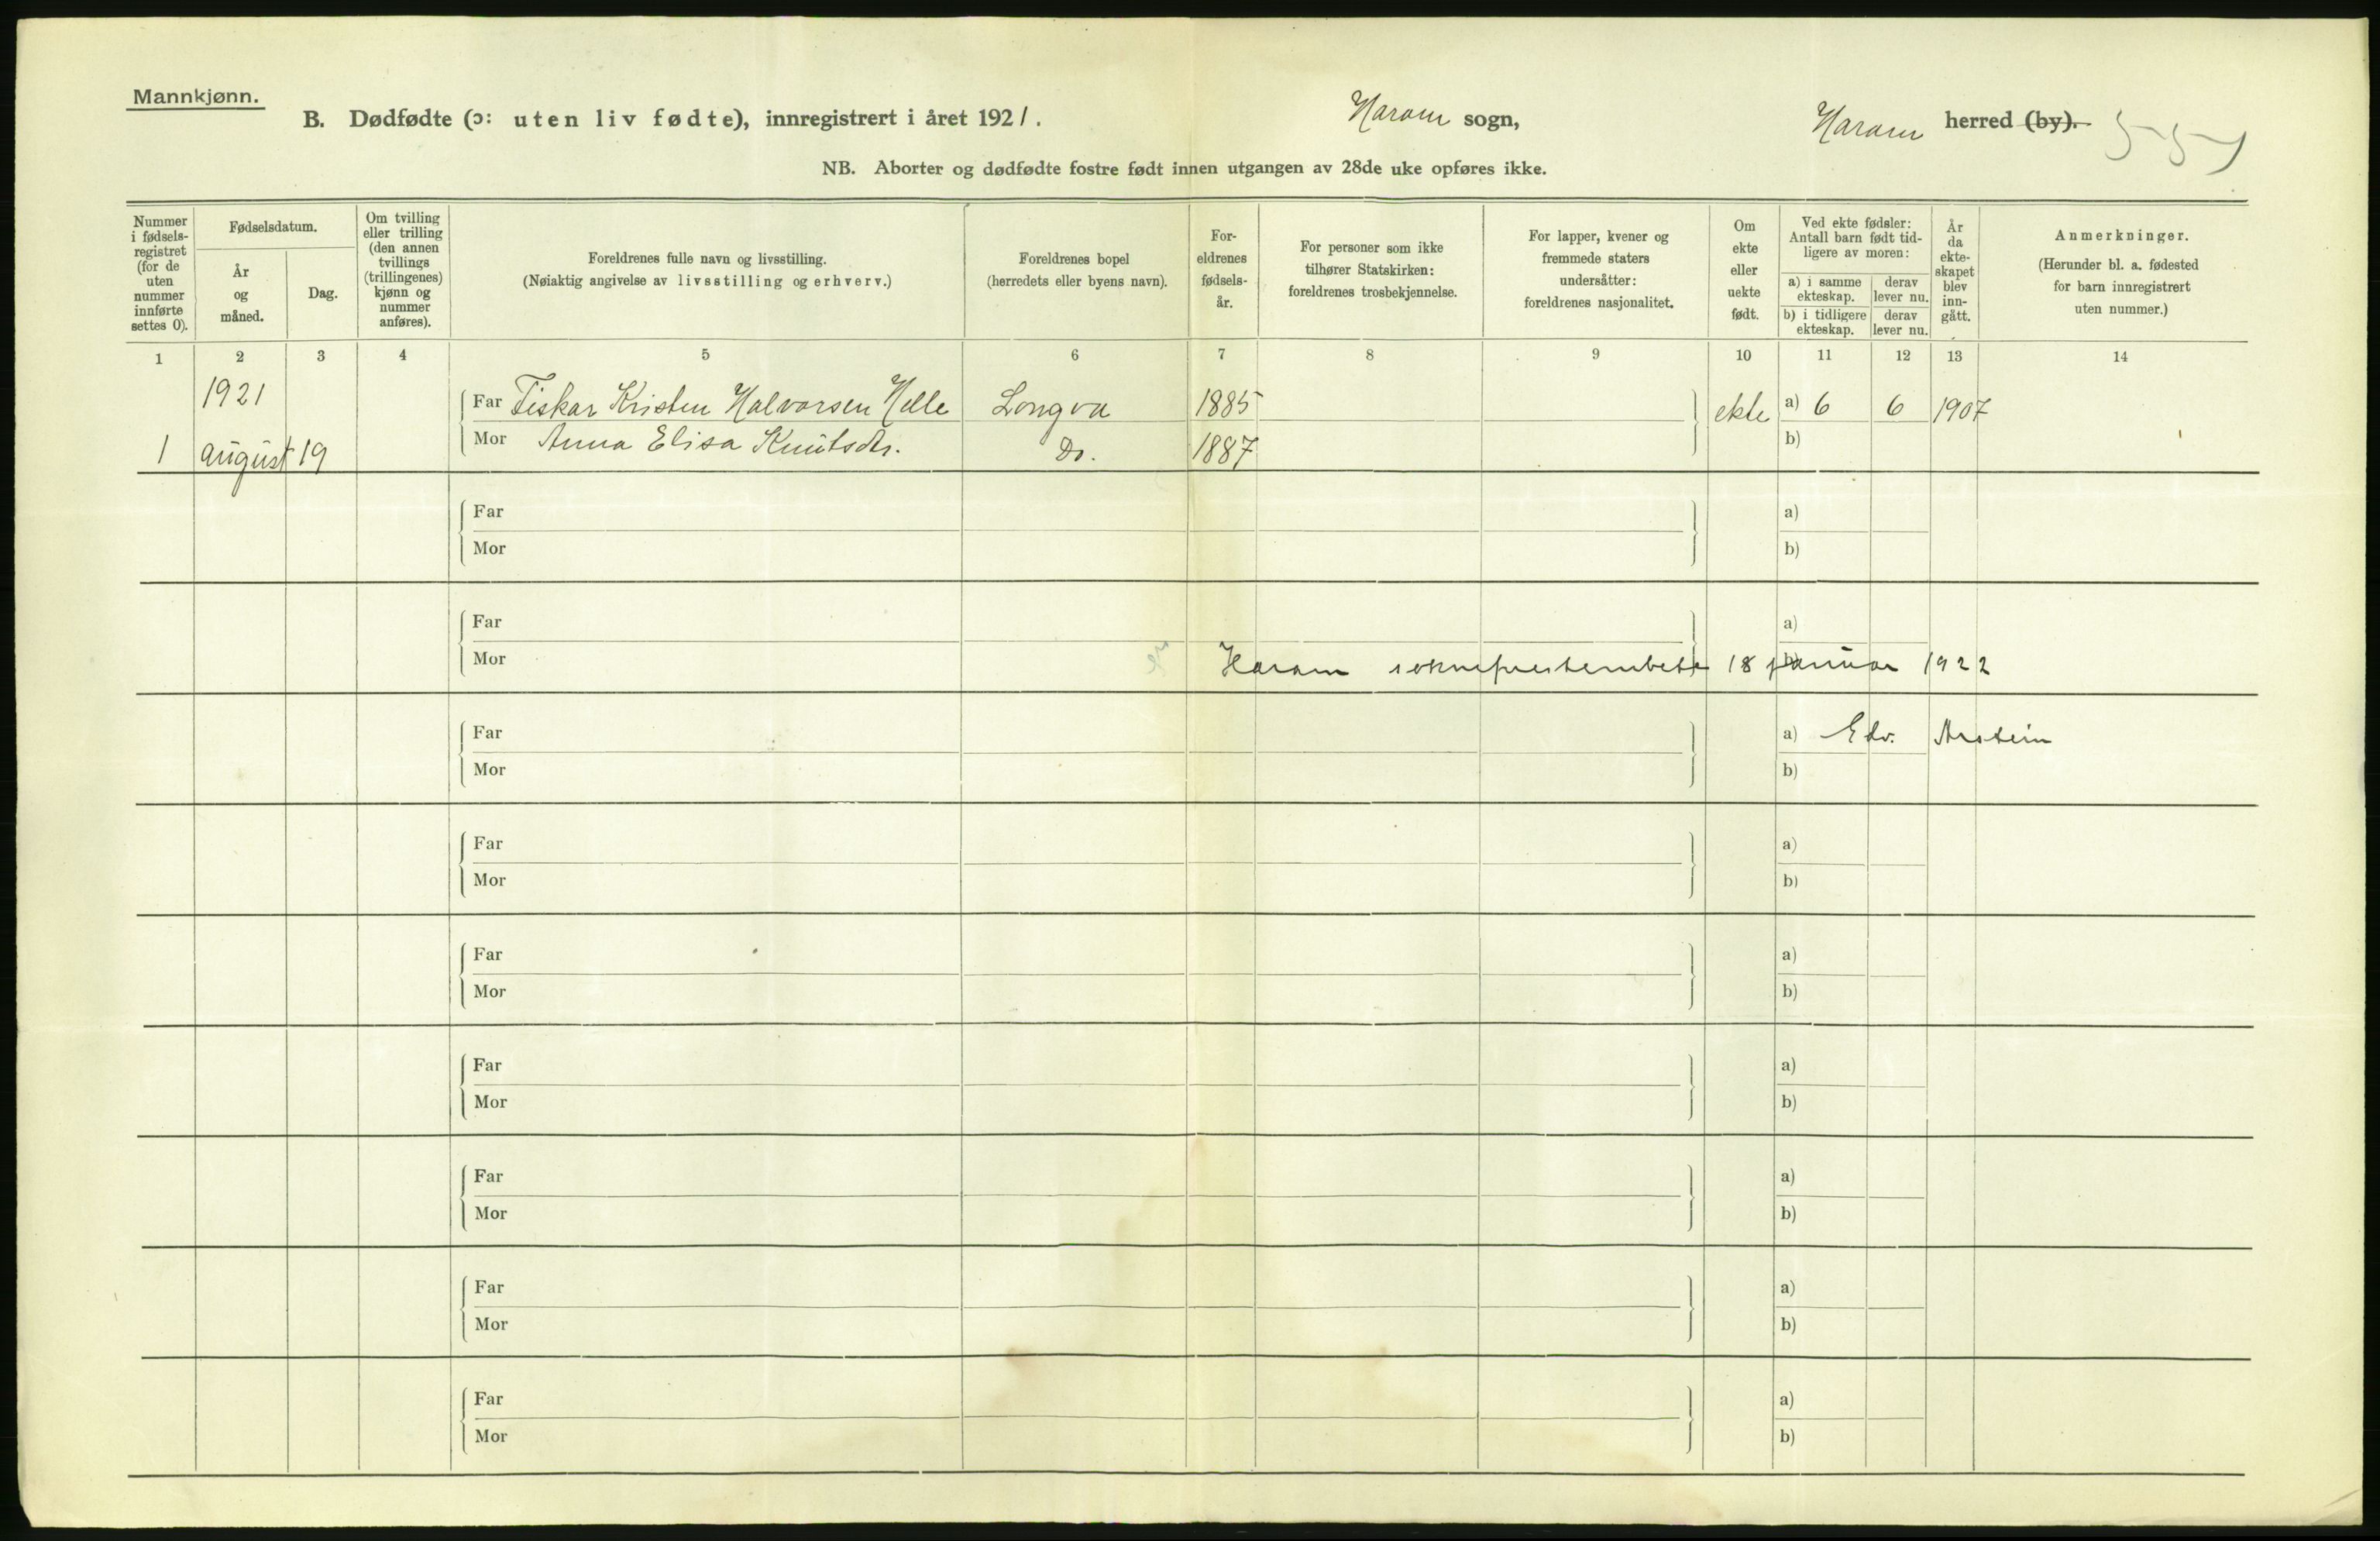 Mannkjønn.
B. Dødfødte (ɔ: uten liv fødte), innregistrert i året 1921. Haram sogn, Haram herred (by). 551
NB. Aborter og dødfødte fostre født innen utgangen av 28de uke opføres ikke.
Nummer i fødsels-registret (for de uten nummer innførte settes 0).
Fødselsdatum.
År og måned.
Dag.
Om tvilling eller trilling (den annen tvillings (trillingenes) kjønn og nummer anføres).
Foreldrenes fulle navn og livsstilling.
(Nøiaktig angivelse av livsstilling og erhverv.)
Foreldrenes bopel
(herredets eller byens navn).
For-eldrenes fødsels-år.
For personer som ikke tilhører Statskirken: foreldrenes trosbekjennelse.
For lapper, kvener og fremmede staters undersåtter: foreldrenes nasjonalitet.
Om ekte eller uekte født.
Ved ekte fødsler: Antall barn født tid-ligere av moren:
a) i samme ekteskap.
derav lever nu.
b) i tidligere ekteskap.
derav lever nu.
År da ekte-skapet blev inn-gått.
Anmerkninger.
(Herunder bl. a. fødested for barn innregistrert uten nummer.)
1 2 3 4 5 6 7 8 9 10 11 12 13 14
1921 Far Fisker Kristen Halvorsen Helle Longva 1885 ekte a) 6 6 1907
1 august 19 Mor Anna Elisa Knutsdtr. Do. 1887 b)
Far a)
Mor b)
Far a)
Mor Haram sokneprestembete 18 januar 1922 b)
Far a) Edv. Arstein
Mor b)
Far a)
Mor b)
Far a)
Mor b)
Far a)
Mor b)
Far a)
Mor b)
Far a)
Mor b)
Far a)
Mor b)